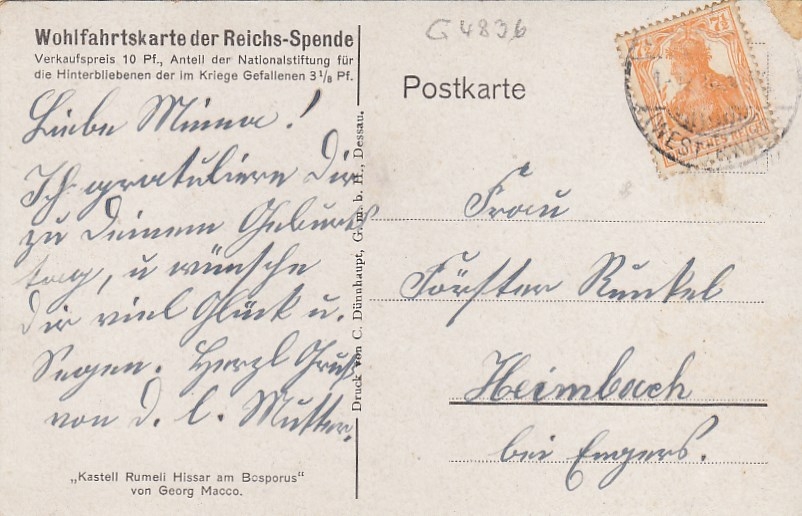 Wohlfahrtskarte der Reichs-Spende
Verkaufspreis 10 Pf., Anteil der Nationalstiftung für
die Hinterbliebenen der im Kriege Gefallenen 3⅛ Pf.
Liebe Minna!
Ich gratuliere Dir
zu Deinem Geburts
tag, u wünsche
Dir viel Glück u.
Segen. Herzl Gruß
von d. l. Mutter.
„Kastell Rumeli Hissar am Bosporus"
von Georg Macco.
Druck von C. Dünnhaupt, G. m. b. H., Dessau.
G 4836
Postkarte
7½
Frau
Förster Runkel
Heimbach
bei Engers.